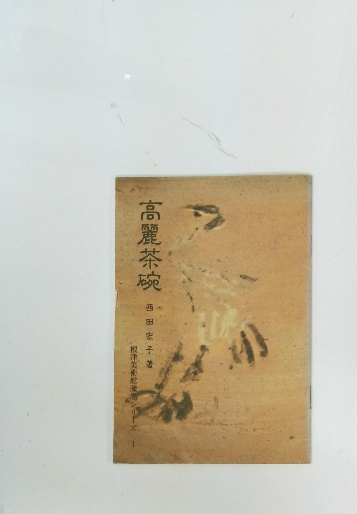 高麗茶碗
西田宏子著
根津美術館蔵品シリーズ 1